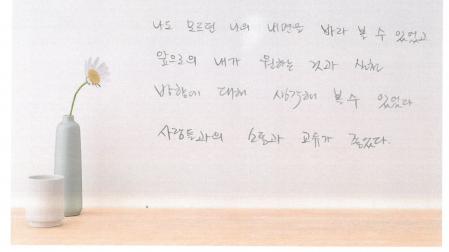 나도 모르던 나의 내면을 바라 볼 수 있었고
앞으로의 내가 원하는 것과 실천
방향에 대해 생각해 볼 수 있었다
사람들과의 소통과 교류가 좋았다.